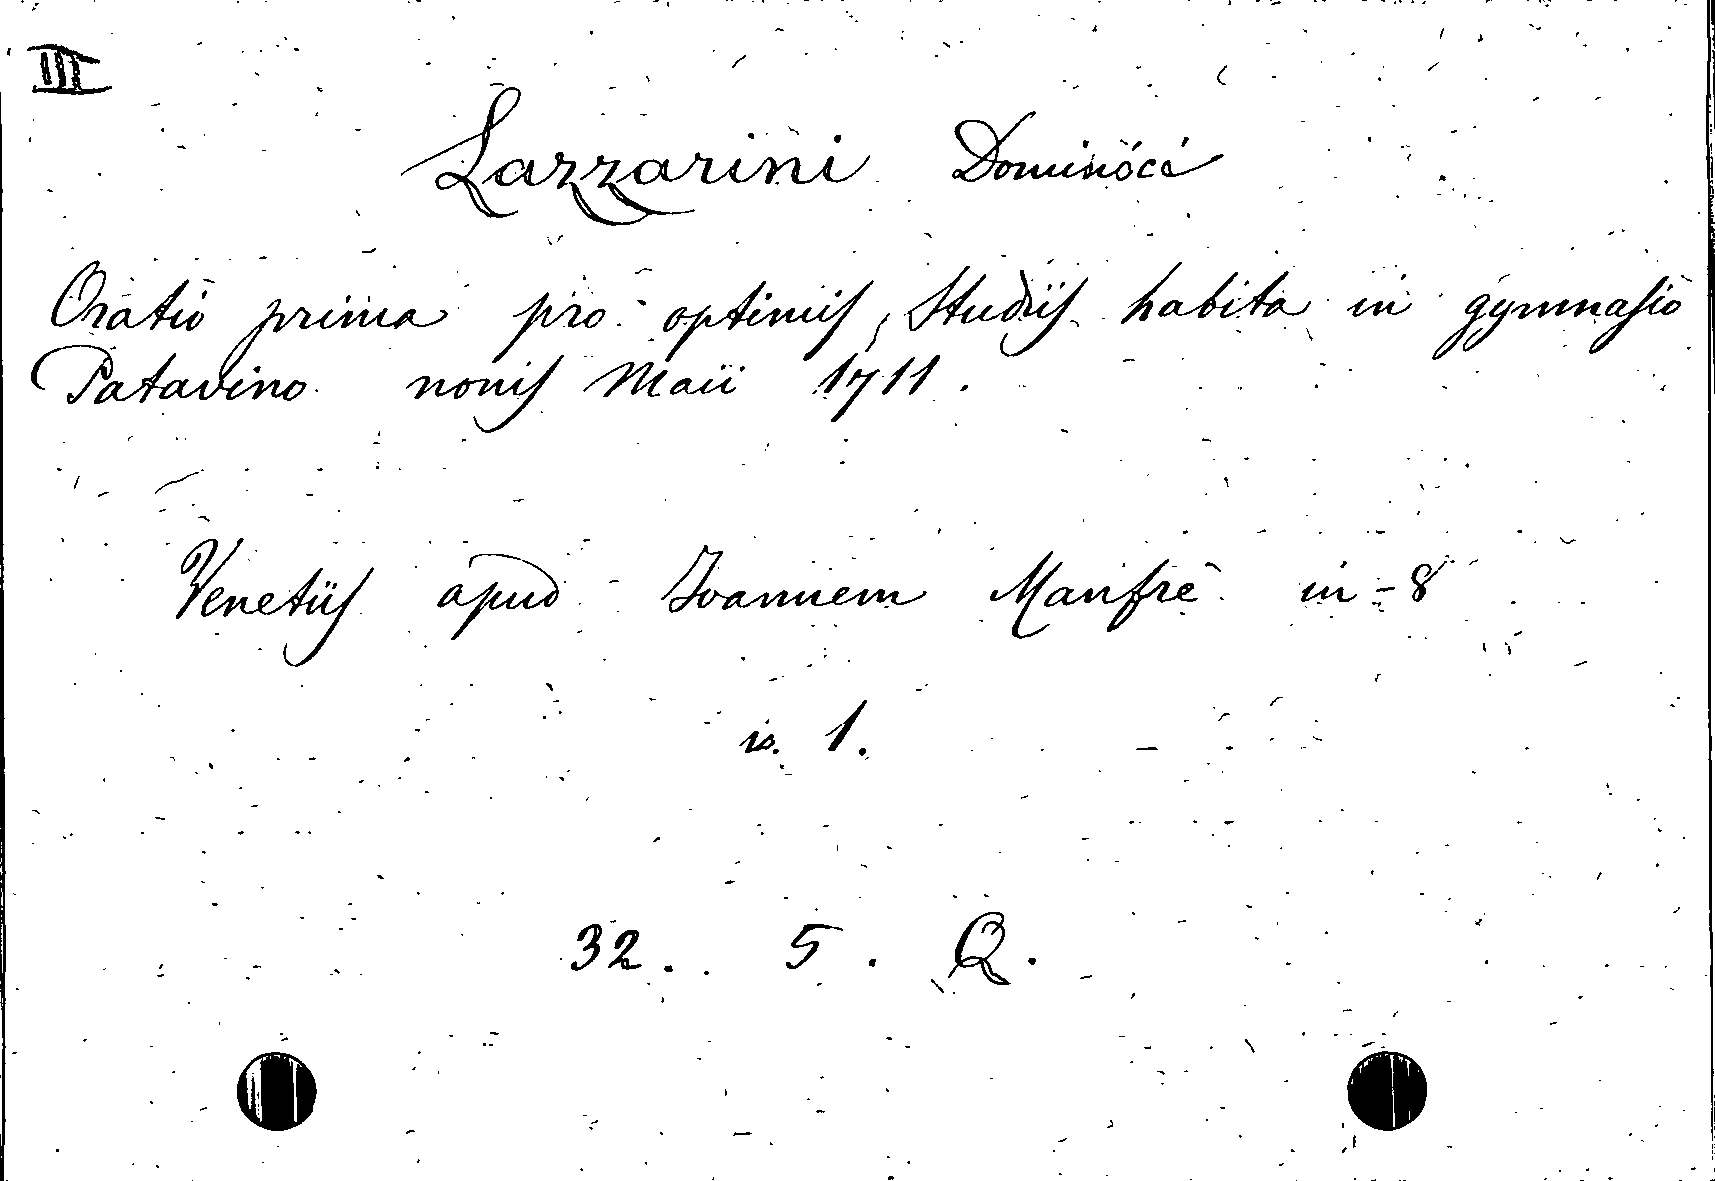 III
Lazzarini Dominici
Oratio prima pro optimis Studiis habita in gymnasio
Patavino nonis Maii 1711.
Venetiis apud Ioannem Manfrè in-8
is. 1.
32. 5. Q.